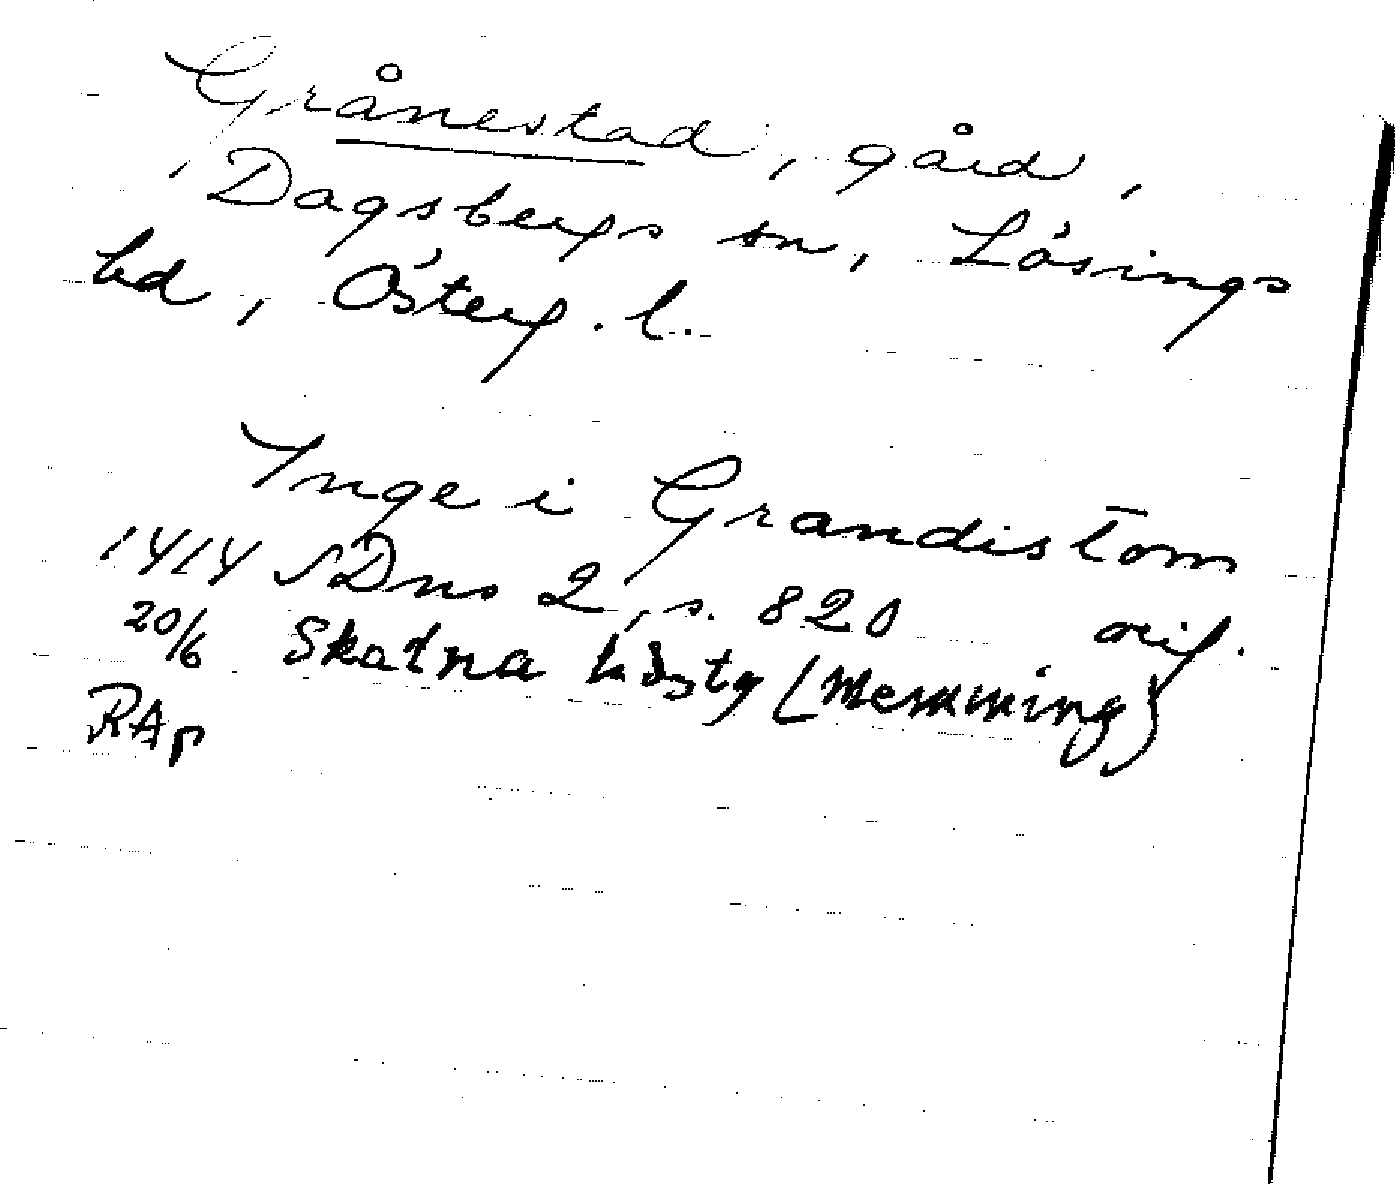 Grånestad, gård,
Dagsbergs sn, Lösings
hd, Österg. l.
Inge i Grandistom
1414 SDns 2, s. 820 orig.
20/6 Skatna hösty (Memming)
RAp